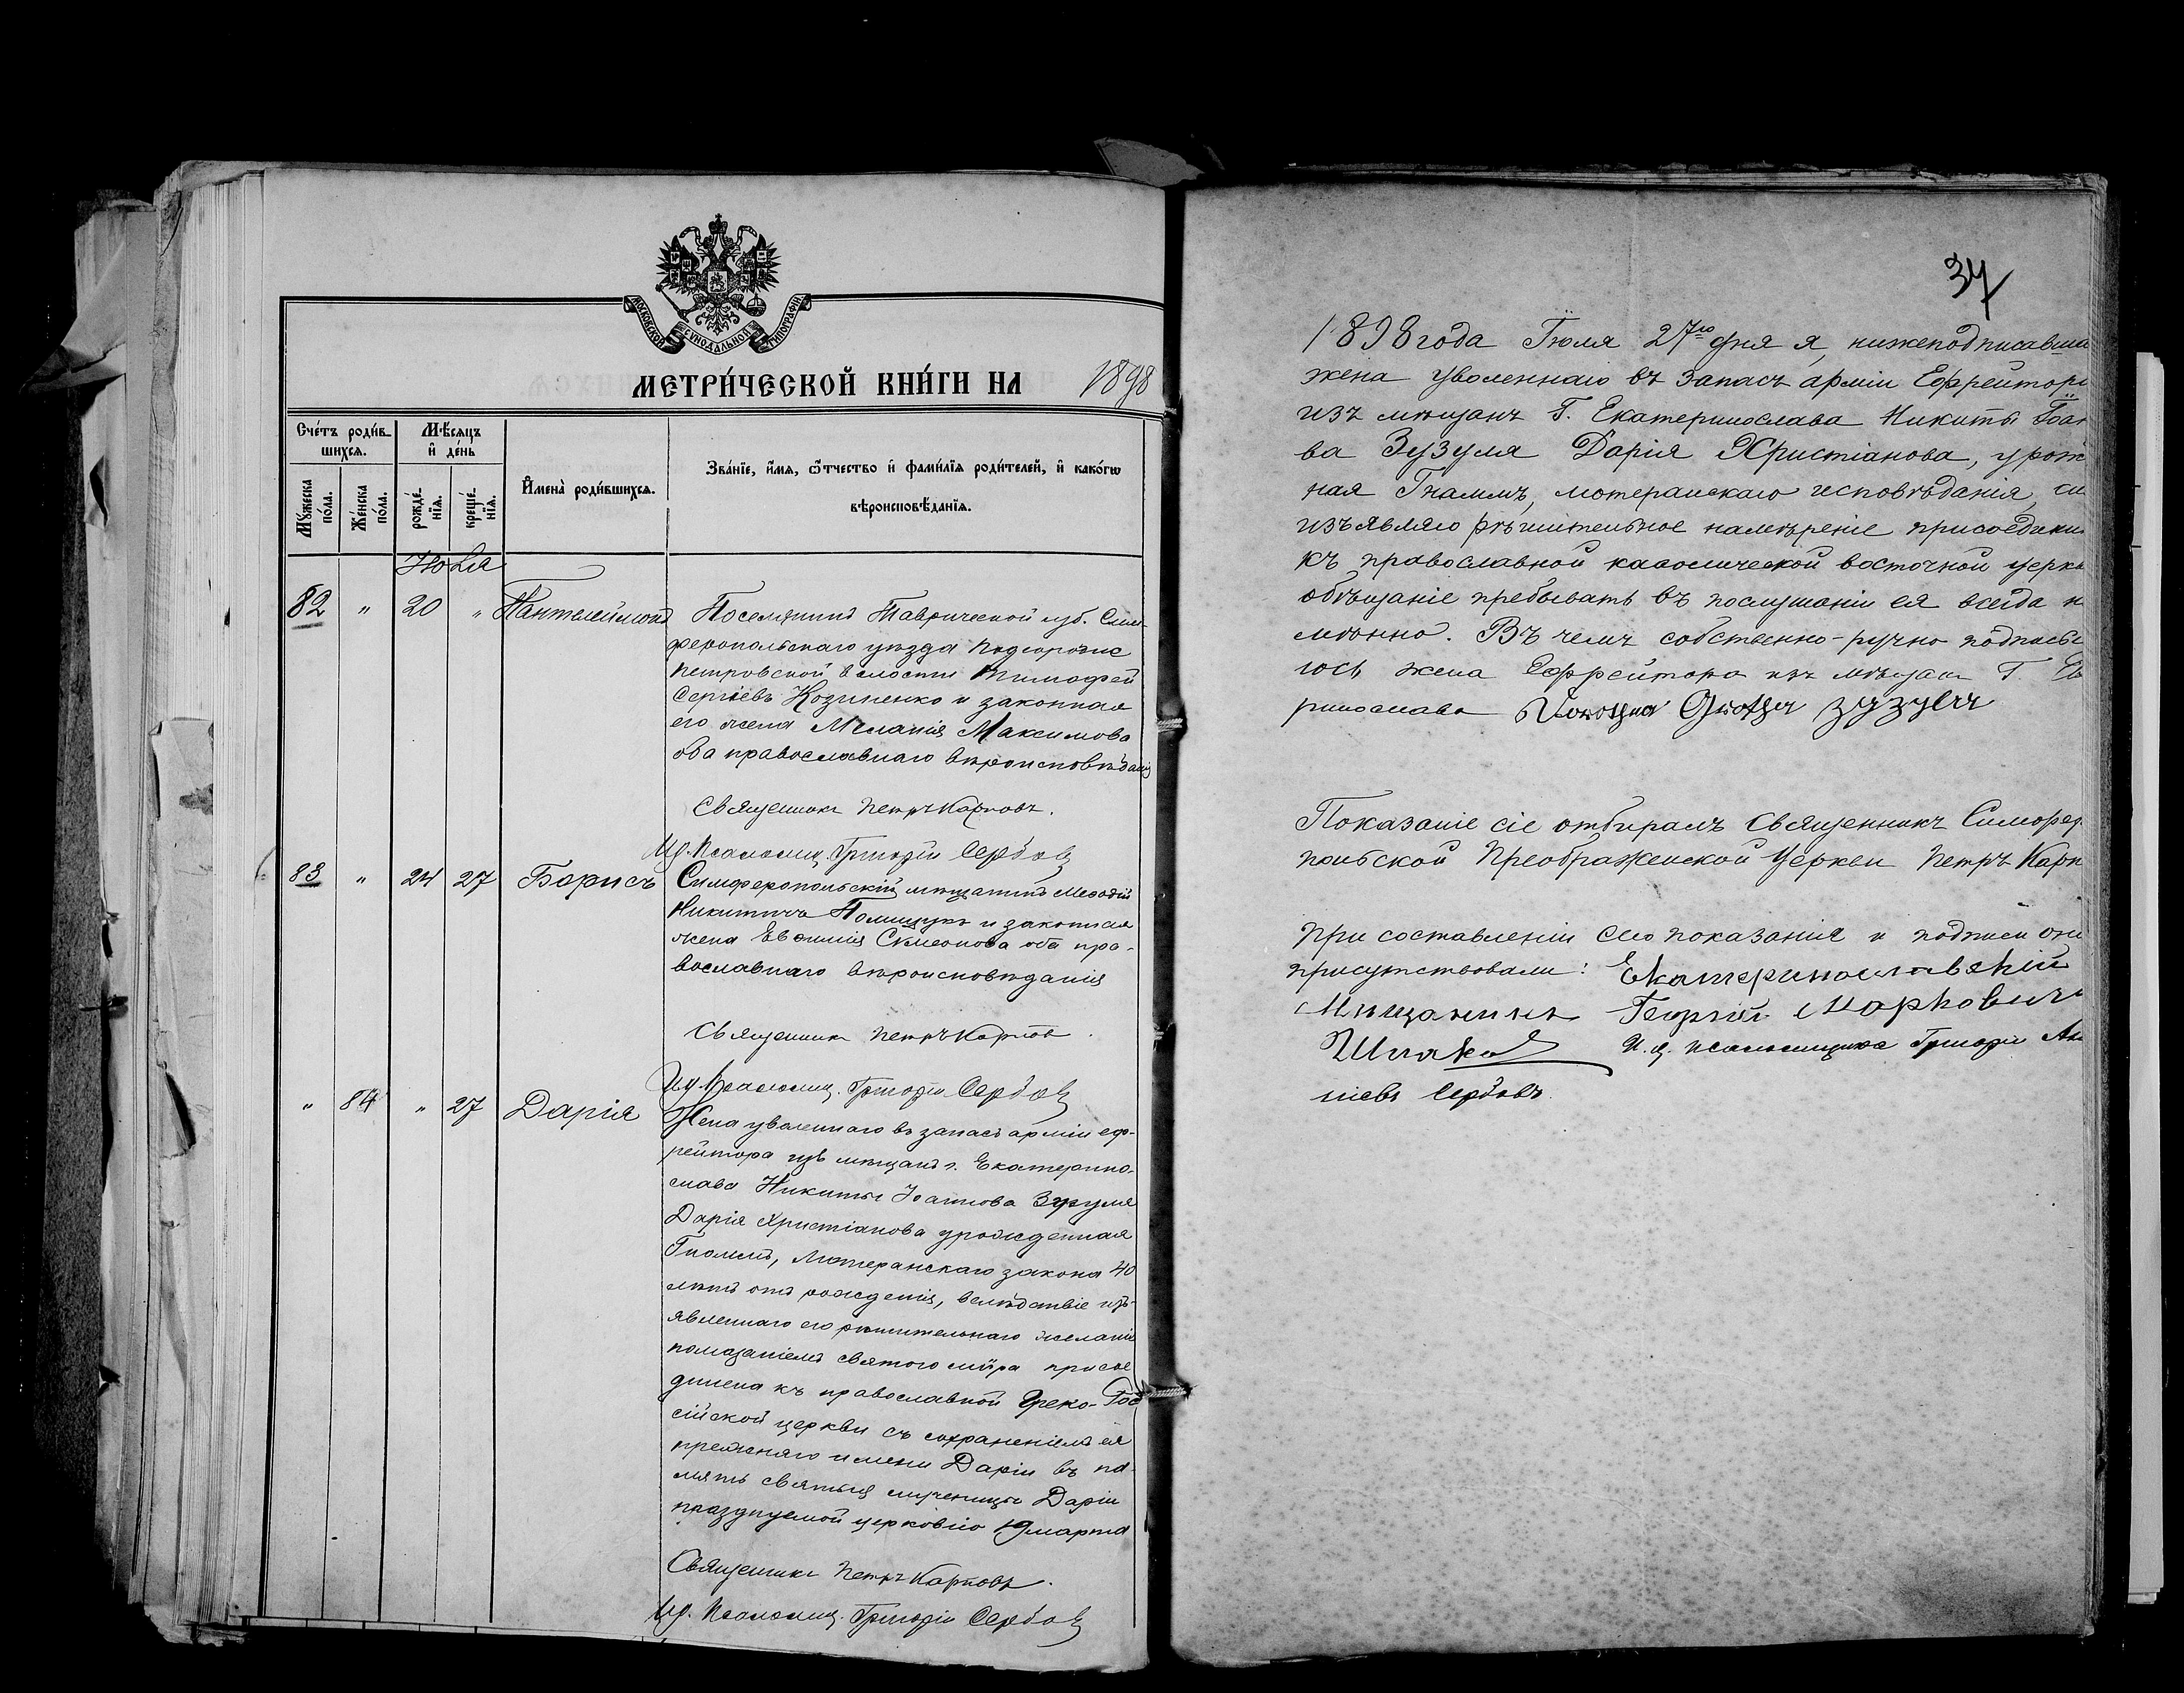 МОСКОВСКОЙ СѴНОДАЛЬНОЙ ТИПОГРАФІИ
МЕТРИ́ЧЕСКОЙ КНИ́ГИ НА 1898
Сче́тъ роди́в-
шихсѧ.
Мѣ́сѧцъ
и҆ де́нь
Мꙋ́жеска по́ла.
Же́нска по́ла.
рожде́-
нїѧ.
креще́-
нїѧ.
И҆мена̀ роди́вшихсѧ.
Зва́нїе, и҆́мѧ, ѻ҆́тчество и҆ фами́лїѧ роди́телей, и҆ како́гѡ
вѣроисповѣ́данїѧ.
Июля
82 " 20 " Пантелеймонъ
Поселянинъ Таврической губ. Сим-
феропольскаго уѣзда Подгородне
Петровской волости Тимофей
Сергіевъ Козиненко и законная
его жена Меланія Максимова
оба православнаго вѣроисповѣданія
Священникъ Петръ Карповъ.
И.д. Псаломщ. Григорій Сербовъ
83 " 24 27 Борисъ
Симферопольскій мѣщанинъ Меѳодій
Никитичъ Полищукъ и законная
жена Евѳимія Симеонова оба пра-
вославнаго вѣроисповѣданія
Священникъ Петръ Карповъ.
И.д. Псаломщ. Григорій Сербовъ
" 84 " 27 Дарія
Жена уволеннаго въ запасъ арміи еф-
рейтора изъ мѣщанъ г. Екатерино-
слава Никиты Іоаннова Зузуля
Дарія Христіанова урожденная
Гнамъ, Лютеранскаго закона 40
лѣтъ отъ рожденія, вслѣдствіе изъ-
явленнаго его рѣшительнаго желанія
помазаніемъ святого мѵра присое
динена къ православной Греко-Рос
сійской церкви съ сохраненіемъ ея
прежняго имени Даріи въ па-
мять святыя мученицы Даріи
празднуемой церковію 19 марта
Священникъ Петръ Карповъ.
И.д. Псаломщ. Григорій Сербовъ
34
1898 года Іюля 27го дня я, нижеподписавша
жена уволеннаго въ запасъ арміи Ефрейтора
изъ мѣщанъ Г. Екатеринослава Никиты Іоан
ва Зузуля Дарія Христіанова, урож
ная Гнаммъ, лютеранскаго исповѣданія, си
изъявляю рѣшительное намѣреніе присоедини
къ православной каѳолической восточной церк
обѣщаніе пребывать въ послушаніи ея всегда н
мѣнно. Въ чемъ собственно-ручно подписы
юсь жена Ефрейтора изъ мѣщанъ Г. Ек
ринослава Зузуля
Показаніе сіе отбиралъ Священникъ Симфер
польской Преображенской Церкви Петръ Карп
При составленіи сего показанія и подписи он
присутствовали: Екатеринославскій
Мѣщанинъ Георгій Марковичъ
И.д. псаломщика Григорій Ан
ніевъ Сербовъ.